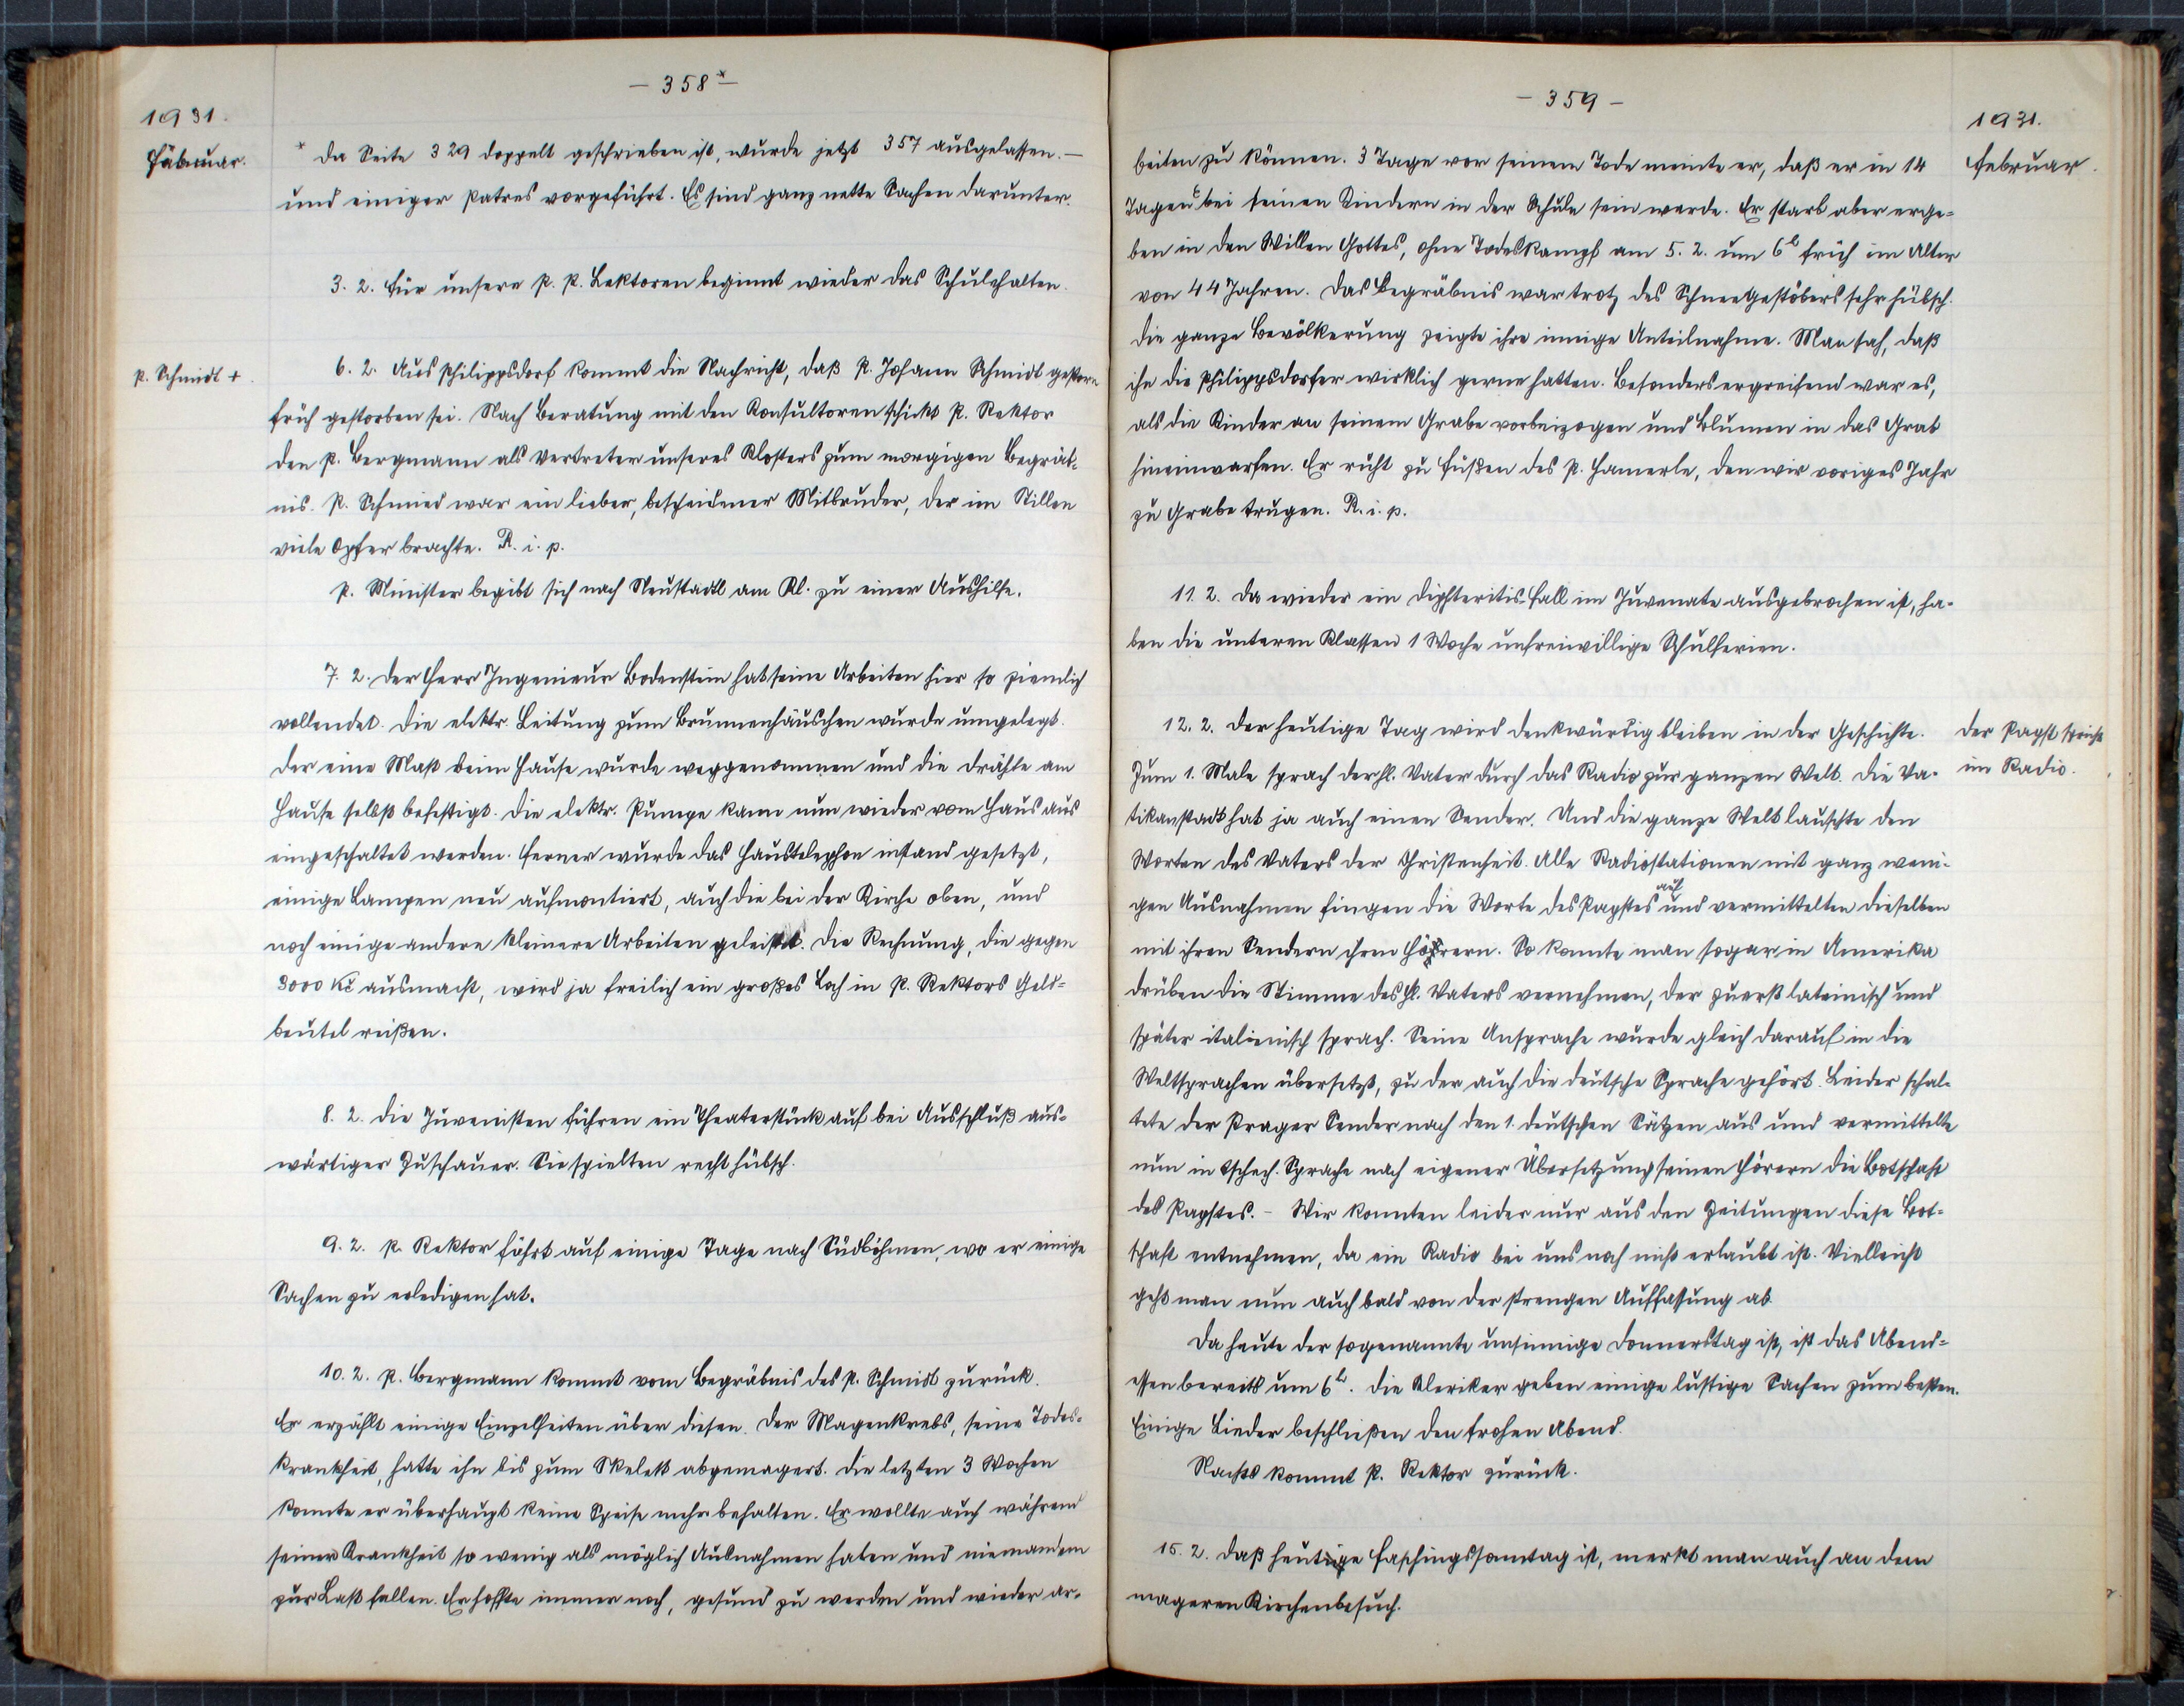 - 358* -
1931.
Februar.
* Da Seite 329 doppelt geschrieben ist, wurde jetzt 357 ausgelassen. -
und einiger Patres vorgeführt. Es sind ganz nette Sachen darunter.
3. 2. Für unsere P. P. Lektoren beginnt wieder das Schulehalten.
P. Schmidt +.
6. 2. Aus Philippsdorf kommt die Nachricht, daß P. Johann Schmidt gestern
früh gestorben sei. Nach Beratung mit den Konsultoren schickt P. Rektor
den P. Bergmann als Vertreter unseres Klosters zum morgigen Begräb-
nis. P. Schmied war ein lieber, bescheidener Mitbruder, der im Stillen
viele Opfer brachte. R. i. p.
P. Minister begibt sich nach Neustadtl am Kl. zu einer Aushilfe.
7. 2. Der Herr Ingenieur Bodenstein hat seine Arbeiten hier so ziemlich
vollendet. Die elektr. Leitung zum Brunnenhäuschen wurde umgelegt.
Der eine Mast beim Hause wurde weggenommen und die Drähte am
Hause selbst befestigt. Die elektr. Pumpe kann nun wieder vom Haus aus
eingeschaltet werden. Ferner wurde das Haustelephon instand gesetzt,
einige Lampen neu aufmontiert, auch die bei der Kirche oben, und
noch einige andere kleinere Arbeiten geleistet. Die Rechnung, die gegen
3000 Kč ausmacht, wird ja freilich ein großes Loch in P. Rektors Geld=
beutel reißen.
8. 2. Die Juvenisten führen ein Theaterstück auf bei Ausschluß aus-
wärtiger Zuschauer. Sie spielten recht hübsch.
9. 2. P. Rektor fährt auf einige Tage nach Südböhmen, wo er einige
Sachen zu erledigen hat.
10. 2. P. Bergmann kommt vom Begräbnis des P. Schmidt zurück.
Er erzählt einige Einzelheiten über diesen. Der Magenkrebs, seine Todes-
krankheit, hatte ihn bis zum Skelett abgemagert. Die letzten 3 Wochen
konnte er überhaupt keine Speise mehr behalten. Er wollte auch während
seiner Krankheit so wenig als möglich Ausnahmen haben und niemandem
zur Last fallen. Er hoffte immer noch, gesund zu werden und wieder ar-
- 359 -
1931.
Februar.
beiten zu können. 3 Tage vor seinem Tode meinte er, daß er in 14
Tagen bei seinen Kindern in der Schule sein werde. Er starb aber erge=
ben in den Willen Gottes, ohne Todeskampf am 5. 2. um 6h früh im Alter
von 44 Jahren. Das Begräbnis war trotz des Schneegestöbers sehr hübsch.
Die ganze Bevölkerung zeigte ihre innige Anteilnahme. Man sah, daß
ihn die Philippsdorfer wirklich gerne hatten. Besonders ergreifend war es,
als die Kinder an seinem Grabe vorbeizogen und Blumen in das Grab
hineinwarfen. Er ruht zu Füßen des P. Hamerle, den wir voriges Jahr
zu Grabe trugen. R. i. p.
11. 2. Da wieder ein Diphteritis-Fall im Juvenate ausgebrochen ist, ha-
ben die unteren Klassen 1 Woche unfreiwillige Schulferien.
12. 2. Der heutige Tag wird denkwürdig bleiben in der Geschichte.
Der Papst spricht
im Radio.
Zum 1. Male sprach der hl. Vater durch das Radio zur ganzen Welt. Die Va-
tikanstadt hat ja auch einen Sender. Und die ganze Welt lauschte den
Worten des Vaters der Christenheit. Alle Radiostationen mit ganz weni-
gen Ausnahmen fingen die Worte des Papstes auf und vermittelten dieselben
mit ihren Sendern ihren Hörern. So konnte man sogar in Amerika
drüben die Stimme des hl. Vaters vernehmen, der zuerst lateinisch und
später italienisch sprach. Seine Ansprache wurde gleich darauf in die
Weltsprachen übersetzt, zu der auch die deutsche Sprache gehört. Leider schal-
tete der Prager Sender nach den 1. deutschen Sätzen aus und vermittelte
nun in tschech. Sprache nach eigener Übersetzung seinen Hörern die Botschaft
des Papstes. - Wir konnten leider nur aus den Zeitungen diese Bot-
schaft entnehmen, da ein Radio bei uns noch nicht erlaubt ist. Vielleicht
geht man nun auch bald von der strengen Auffassung ab.
Da heute der sogenannte unsinnige Donnerstag ist, ist das Abend=
essen bereits um 6h. Die Kleriker geben einige lustige Sachen zum besten.
Einige Lieder beschließen den frohen Abend.
Nachts kommt P. Rektor zurück.
15. 2. Daß heutige Faschingssonntag ist, merkt man auch an dem
mageren Kirchenbesuch.